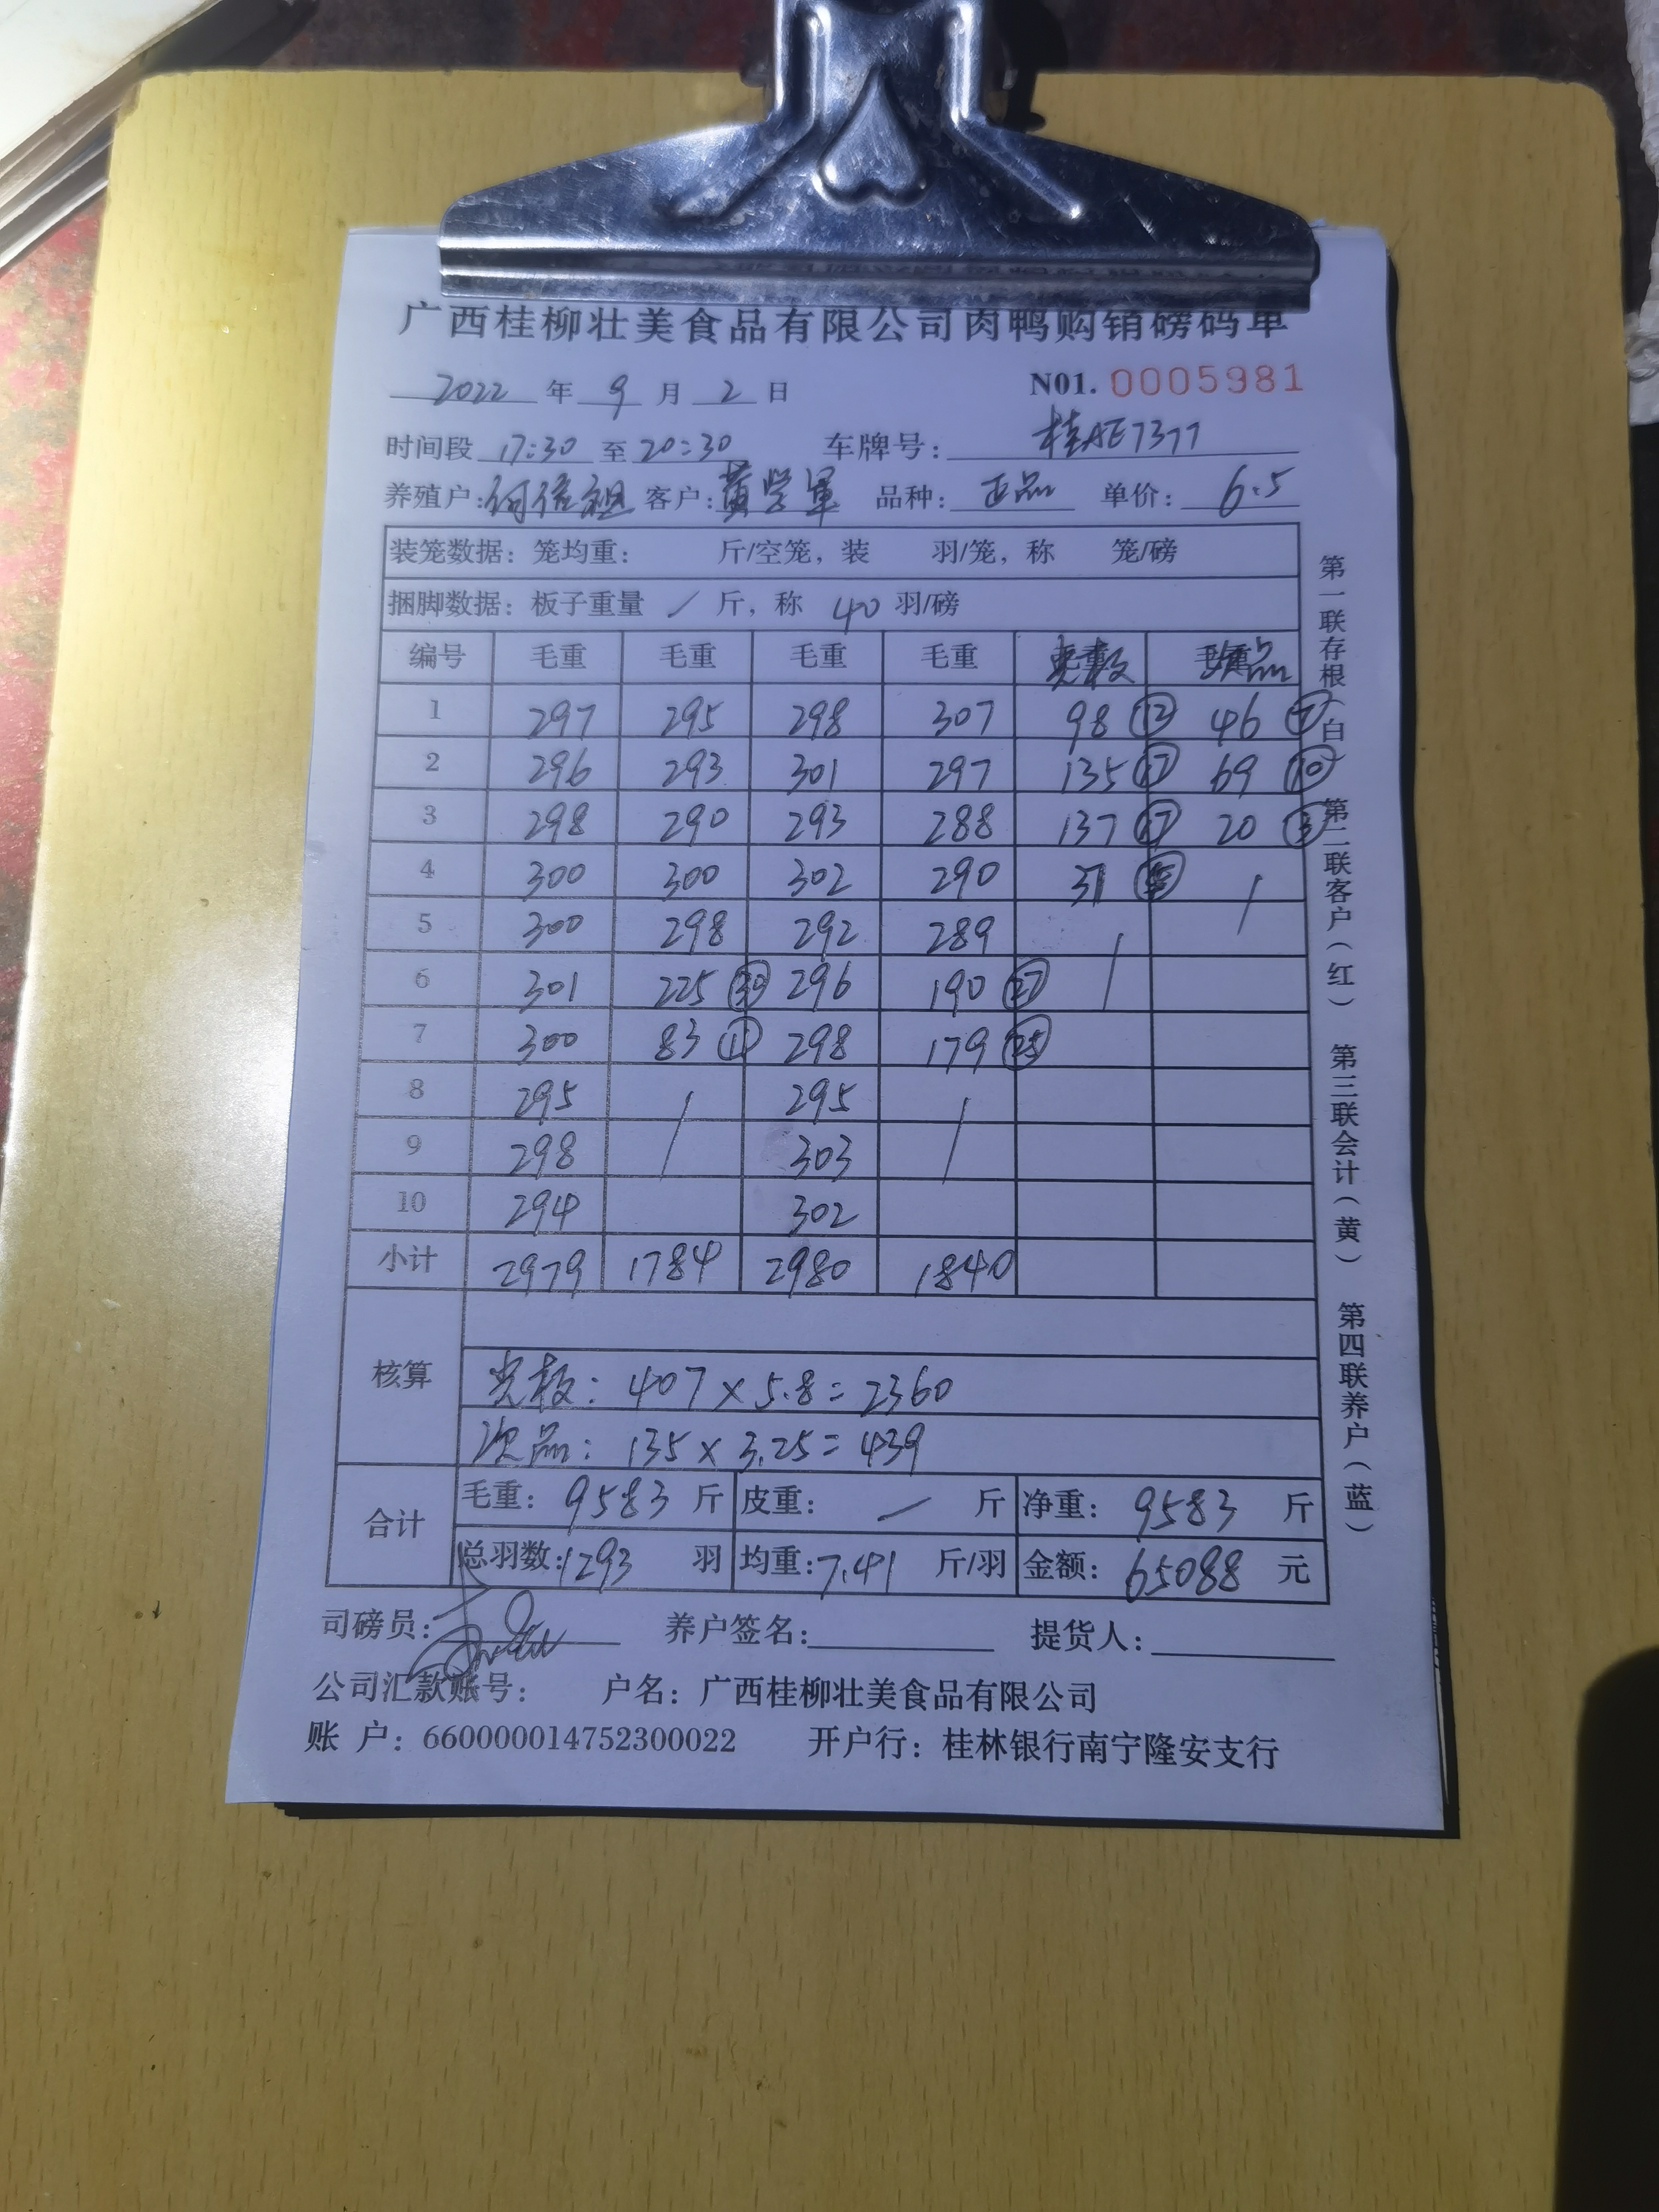 广西桂柳壮美食品有限公司肉鸭购销磅码单
2022 年 9 月 2 日 N01. 0005981
时间段 17:30 至 20:30 车牌号: 桂AE7377
养殖户: 何信祖 客户: 黄学军 品种: 正品 单价: 6.5
装笼数据: 笼均重: 斤/空笼, 装 羽/笼, 称 笼/磅
捆脚数据: 板子重量 / 斤, 称 40 羽/磅
编号 毛重 毛重 毛重 毛重 光板 次品
1 297 295 298 307 98 ⑫ 46 ⑦
2 296 293 301 297 135 ⑰ 69 ⑩
3 298 290 293 288 137 ⑰ 20 ③
4 300 300 302 290 37 /
5 300 298 292 289 /
6 301 225 ㉚ 296 190 ㉗
7 300 83 ⑪ 298 179 ㉕
8 295 / 295 /
9 298 303
10 294 302
小计 2979 1784 2980 1840
核算
光板: 407 × 5.8 = 2360
次品: 135 × 3.25 = 439
合计 毛重: 9583 斤 皮重: / 斤 净重: 9583 斤
总羽数: 1293 羽 均重: 7.41 斤/羽 金额: 65088 元
司磅员: 养户签名: 提货人:
公司汇款账号: 户名: 广西桂柳壮美食品有限公司
账 户: 660000014752300022 开户行: 桂林银行南宁隆安支行
第一联存根(白) 第二联客户(红) 第三联会计(黄) 第四联养户(蓝)